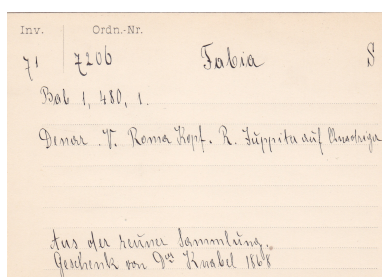 Inv. Ordn.-Nr.
71 7206 Fabia S
Bab 1, 480, 1.
Denar. V. Roma Kopf. R. Juppiter auf Quadriga
Aus der Sammlung.
Geschenk von Dr Knabel 1868